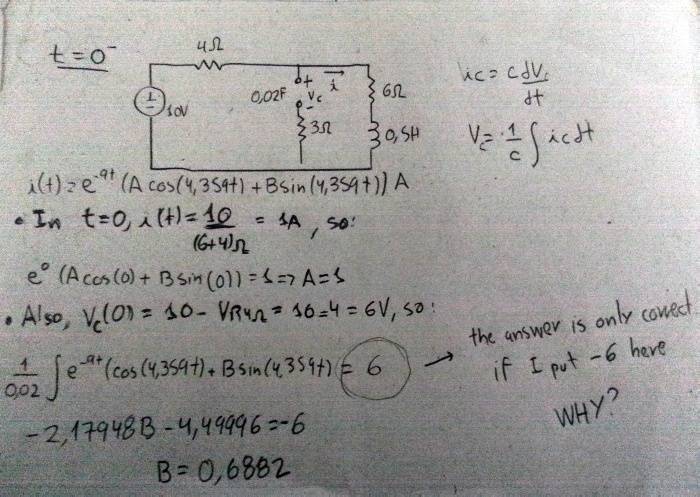 t = 0⁻
4Ω
10V
0,02F
+
Vc
-
i
3Ω
6Ω
0,5H
ic = C dVc/dt
Vc = 1/C ∫ ic dt
i(t) = e^-9t (A cos(4,359t) + B sin(4,359t)) A
• In t=0, i(t) = 10/(6+4)Ω = 1A, so:
e⁰ (A cos(0) + B sin(0)) = 1 => A = 1
• Also, Vc(0) = 10 - VR4Ω = 10-4 = 6V, so:
1/0,02 ∫ e^-9t (cos(4,359t) + B sin(4,359t)) = 6
→ the answer is only correct
if I put -6 here
WHY?
-2,17948B - 4,49996 = -6
B = 0,6882